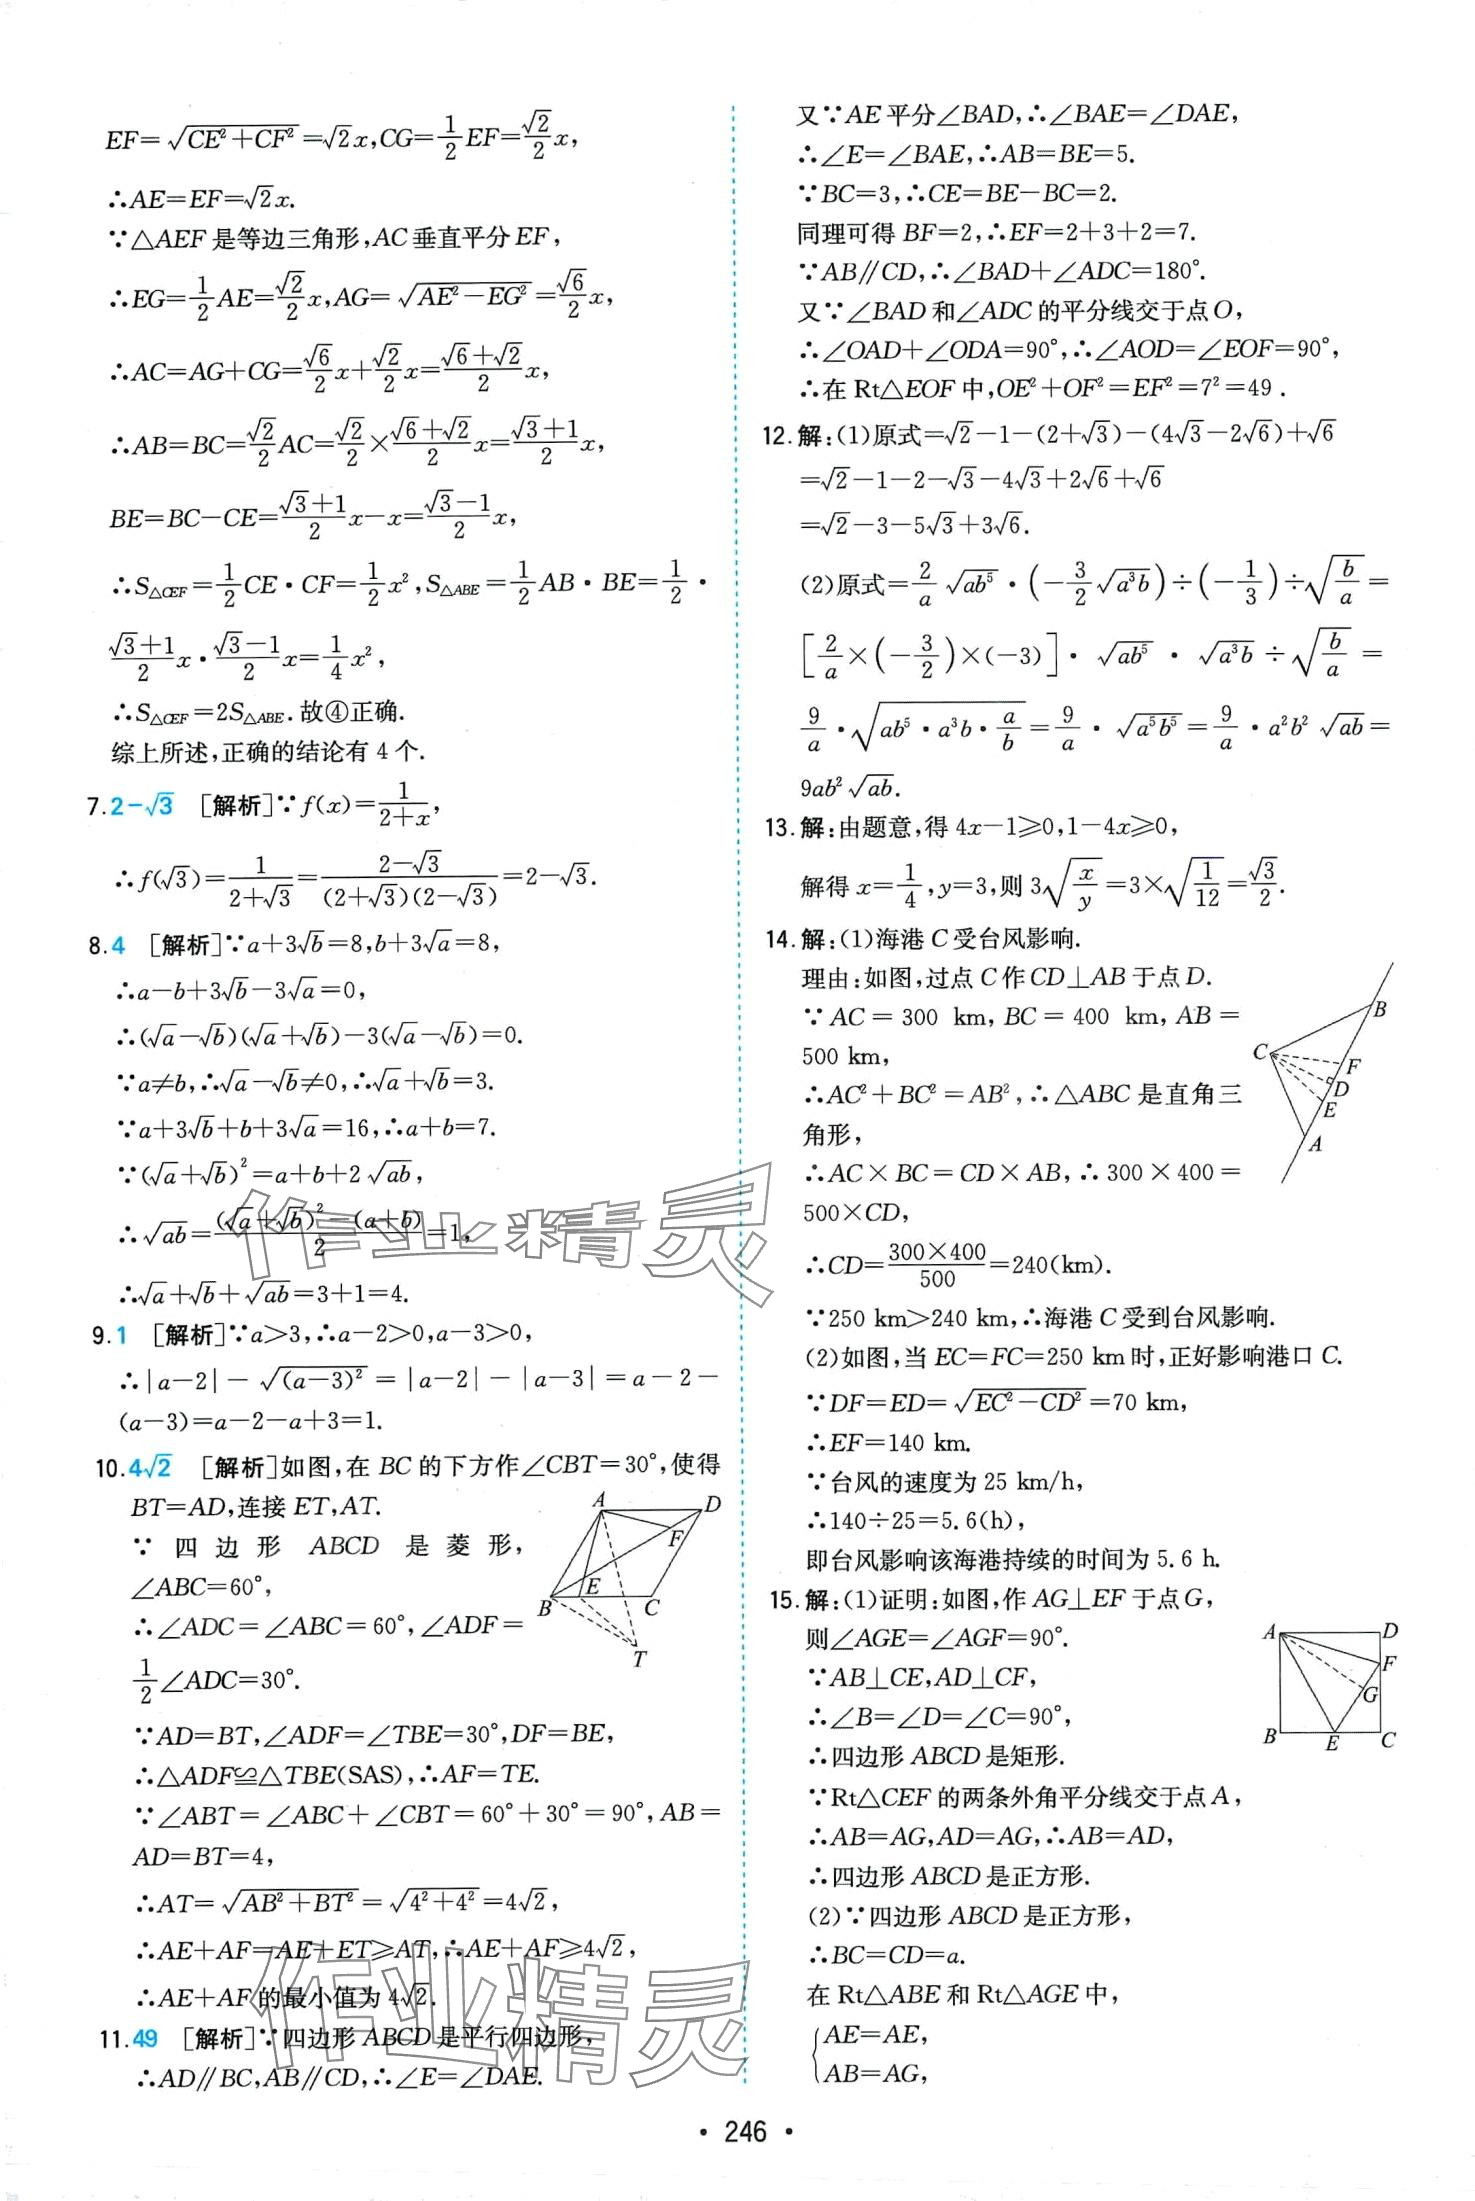 EF=√(CE²+CF²)=√2x,CG=1/2EF=√2/2x,
∴AE=EF=√2x.
∵△AEF是等边三角形,AC垂直平分EF,
∴EG=1/2AE=√2/2x,AG=√(AE²-EG²)=√6/2x,
∴AC=AG+CG=√6/2x+√2/2x=(√6+√2)/2x,
∴AB=BC=√2/2AC=√2/2×(√6+√2)/2x=(√3+1)/2x,
BE=BC-CE=(√3+1)/2x-x=(√3-1)/2x,
∴S△CEF=1/2CE·CF=1/2x²,S△ABE=1/2AB·BE=1/2·
(√3+1)/2x·(√3-1)/2x=1/4x²,
∴S△CEF=2S△ABE.故④正确.
综上所述,正确的结论有4个.
7.2-√3 [解析]∵f(x)=1/(2+x),
∴f(√3)=1/(2+√3)=(2-√3)/((2+√3)(2-√3))=2-√3.
8.4 [解析]∵a+3√b=8,b+3√a=8,
∴a-b+3√b-3√a=0,
∴(√a-√b)(√a+√b)-3(√a-√b)=0.
∵a≠b,∴√a-√b≠0,∴√a+√b=3.
∵a+3√b+b+3√a=16,∴a+b=7.
∵(√a+√b)²=a+b+2√(ab),
∴√(ab)=((√a+√b)²-(a+b))/2=1,
∴√a+√b+√(ab)=3+1=4.
9.1 [解析]∵a>3,∴a-2>0,a-3>0,
∴|a-2|-√((a-3)²)=|a-2|-|a-3|=a-2-
(a-3)=a-2-a+3=1.
10.4√2 [解析]如图,在BC的下方作∠CBT=30°,使得
BT=AD,连接ET,AT.
∵四边形ABCD是菱形,
∠ABC=60°,
∴∠ADC=∠ABC=60°,∠ADF=
1/2∠ADC=30°.
A
D
F
B
E
C
T
∵AD=BT,∠ADF=∠TBE=30°,DF=BE,
∴△ADF≌△TBE(SAS),∴AF=TE.
∵∠ABT=∠ABC+∠CBT=60°+30°=90°,AB=
AD=BT=4,
∴AT=√(AB²+BT²)=√(4²+4²)=4√2,
∴AE+AF=AE+ET≥AT,∴AE+AF≥4√2,
∴AE+AF的最小值为4√2.
11.49 [解析]∵四边形ABCD是平行四边形,
∴AD∥BC,AB∥CD,∴∠E=∠DAE.
又∵AE平分∠BAD,∴∠BAE=∠DAE,
∴∠E=∠BAE,∴AB=BE=5.
∵BC=3,∴CE=BE-BC=2.
同理可得BF=2,∴EF=2+3+2=7.
∵AB∥CD,∴∠BAD+∠ADC=180°.
又∵∠BAD和∠ADC的平分线交于点O,
∴∠OAD+∠ODA=90°,∴∠AOD=∠EOF=90°,
∴在Rt△EOF中,OE²+OF²=EF²=7²=49.
12.解:(1)原式=√2-1-(2+√3)-(4√3-2√6)+√6
=√2-1-2-√3-4√3+2√6+√6
=√2-3-5√3+3√6.
(2)原式=2/a√(ab⁵)·(-3/2√(a³b))÷(-1/3)÷√(b/a)=
[2/a×(-3/2)×(-3)]·√(ab⁵)·√(a³b)÷√(b/a)=
9/a·√(ab⁵·a³b·a/b)=9/a·√(a⁵b⁵)=9/a·a²b²√(ab)=
9ab²√(ab).
13.解:由题意,得4x-1≥0,1-4x≥0,
解得x=1/4,y=3,则3√(x/y)=3×√(1/12)=√3/2.
14.解:(1)海港C受台风影响.
理由:如图,过点C作CD⊥AB于点D.
∵AC=300 km,BC=400 km,AB=
500 km,
∴AC²+BC²=AB²,∴△ABC是直角三
角形,
∴AC×BC=CD×AB,∴300×400=
500×CD,
B
C
F
D
E
A
∴CD=(300×400)/500=240(km).
∵250 km>240 km,∴海港C受到台风影响.
(2)如图,当EC=FC=250 km时,正好影响港口C.
∵DF=ED=√(EC²-CD²)=70 km,
∴EF=140 km.
∵台风的速度为25 km/h,
∴140÷25=5.6(h),
即台风影响该海港持续的时间为5.6 h.
15.解:(1)证明:如图,作AG⊥EF于点G,
则∠AGE=∠AGF=90°.
∵AB⊥CE,AD⊥CF,
∴∠B=∠D=∠C=90°,
∴四边形ABCD是矩形.
A
D
F
G
B
E
C
∵Rt△CEF的两条外角平分线交于点A,
∴AB=AG,AD=AG,∴AB=AD,
∴四边形ABCD是正方形.
(2)∵四边形ABCD是正方形,
∴BC=CD=a.
在Rt△ABE和Rt△AGE中,
{AE=AE,
AB=AG,
作业精灵
作业精灵
·246·